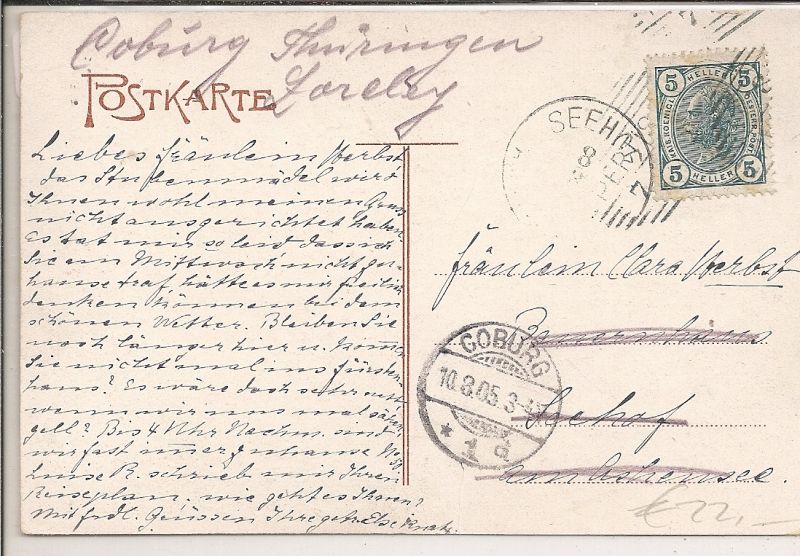 Coburg Thüringen
Loreley
POSTKARTE
Liebes Fräulein Herbst
das Stubenmädel wird
Ihnen wohl meinen Gruss
nicht ausgerichtet haben.
Es tat mir so leid dass ich
Sie am Mittwoch nicht zu-
hause traf, hätte es mir freilich
denken können bei dem
schönen Wetter. Bleiben Sie
noch länger hier u. kommen
Sie nicht mal ins Fürsten-
haus? Es wäre doch sehr nett
wenn wir uns mal sähen
gell? Bis 4 Uhr Nachm. sind
wir fast immer zuhause
R. schrieb mir Ihren
Reiseplan. wie geht es Ihnen?
Mit frdl. Grüssen Ihre Else
5 HELLER 5
KAIS. KOENIGL. OESTERR. POST
5 HELLER 5
SEEHOF
8
Fräulein Clara Herbst
Bauernhaus
Seehof
am Achensee.
COBURG
10.8.05.3-4
* 1 d
22,-